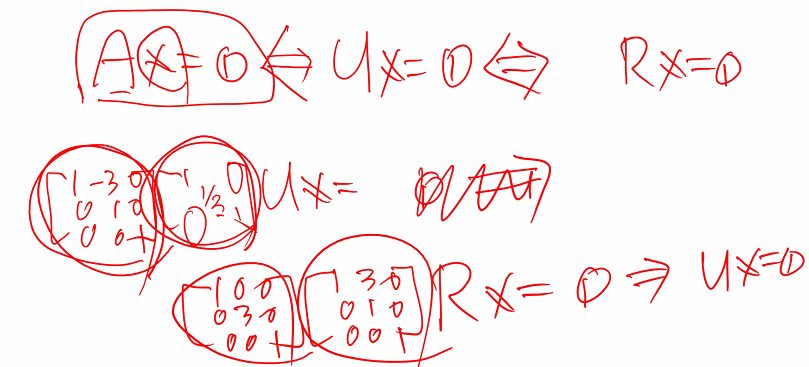 Ax=0 ⇔ Ux=0 ⇔ Rx=0
[1 -3 0; 0 1 0; 0 0 1] [1 0; 1/3; 0 1] Ux= 0
[1 0 0; 0 3 0; 0 0 1] [1 3 0; 0 1 0; 0 0 1] Rx=0 ⇒ Ux=0